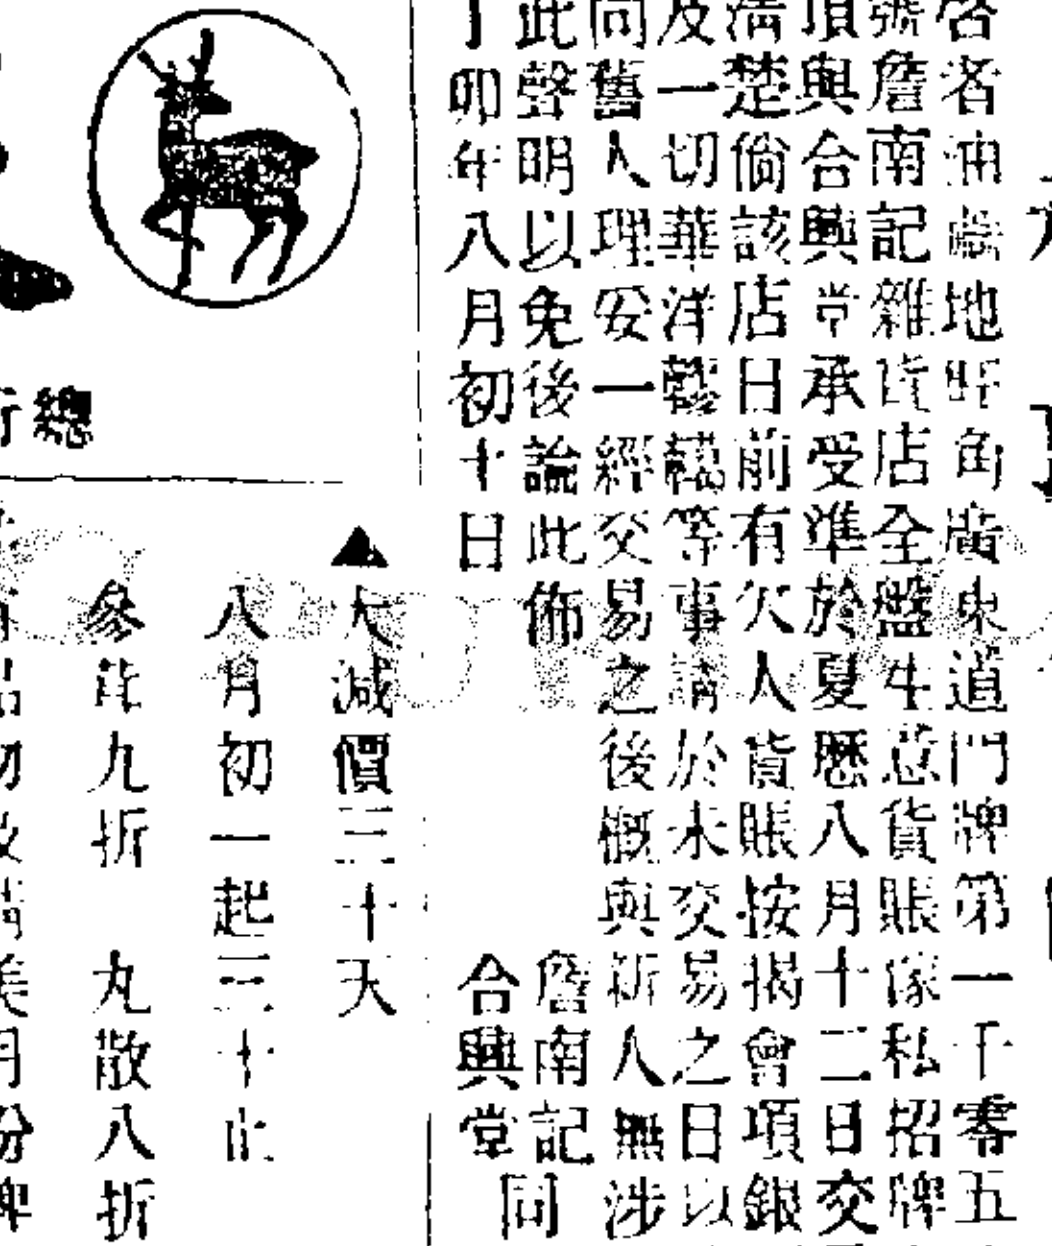 啓者油蔴地旺角廣東道門牌第一千零五
號詹南記雜貨店全盤生意貨賬傢私招牌
頂與合興堂承受準於夏歷八月十二日交
清楚倘該店日前有欠人貨賬按揭會項銀
及一切華洋轇轕等事請於未交易之日以
向舊人理妥一經交易之後概與新人無涉
此聲明以免後論此佈
詹南記
丁卯年八月初十日
合興堂
同
總
▲大減價三十天
八月初一起三十止
參茸九折
丸散八折